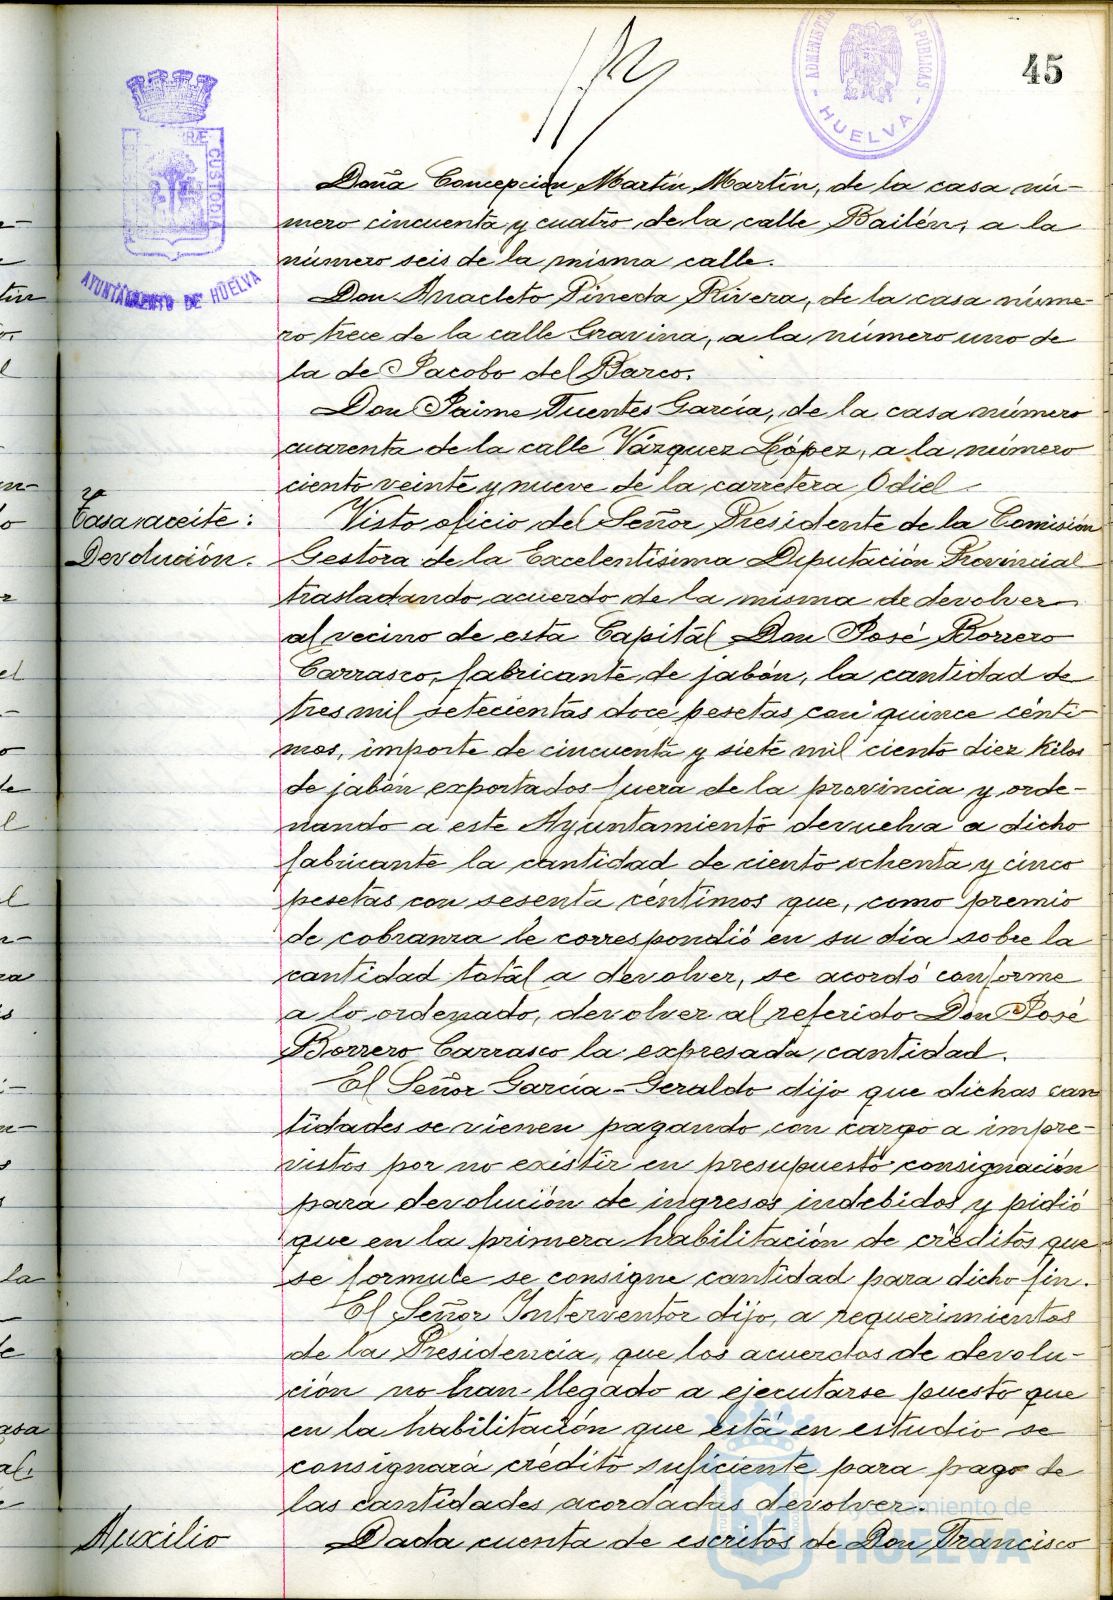 45
ADMINISTRA AS PÚBLICAS
HUELVA
RÆ CUSTODIA
AYUNTAMIENTO DE HUELVA
Doña Concepción Martín Martín, de la casa nú-
mero cincuenta y cuatro de la calle Bailén, a la
número seis de la misma calle.
Don Anacleto Pineda Rivera, de la casa núme-
ro trece de la calle Gravina, a la número uno de
la de Jacobo del Barco.
Don Jaime Fuentes García, de la casa número
cuarenta de la calle Vázquez López, a la número
ciento veinte y nueve de la carretera Odiel.
Tasa aceite:
Devolución.
Visto oficio del Señor Presidente de la Comisión
Gestora de la Excelentísima Diputación Provincial
trasladando acuerdo de la misma de devolver
al vecino de esta Capital Don José Borrero
Carrasco, fabricante de jabón, la cantidad de
tres mil setecientas doce pesetas con quince cénti-
mos, importe de cincuenta y siete mil ciento diez kilos
de jabón exportados fuera de la provincia y orde-
nando a este Ayuntamiento devuelva a dicho
fabricante la cantidad de ciento ochenta y cinco
pesetas con sesenta céntimos que, como premio
de cobranza le correspondió en su día sobre la
cantidad total a devolver, se acordó conforme
a lo ordenado, devolver al referido Don José
Borrero Carrasco la expresada cantidad.
El Señor García-Geraldo dijo que dichas can
tidades se vienen pagando con cargo a impre-
vistos por no existir en presupuesto consignación
para devolución de ingresos indebidos y pidió
que en la primera habilitación de créditos que
se formule se consigne cantidad para dicho fin.
El Señor Interventor dijo, a requerimientos
de la Presidencia, que los acuerdos de devolu-
ción no han llegado a ejecutarse puesto que
en la habilitación que está en estudio se
consignará crédito suficiente para pago de
las cantidades acordadas devolver.
Auxilio
Dada cuenta de escritos de Don Francisco
Ayuntamiento de
HUELVA